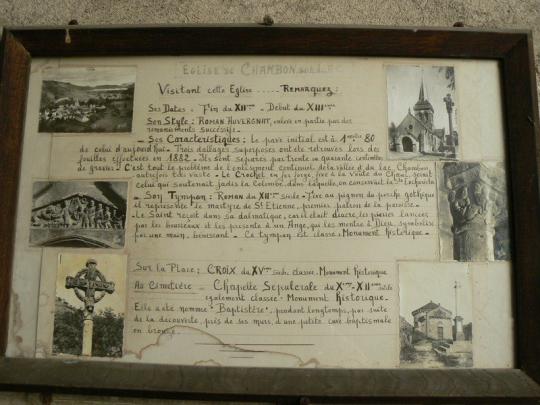 EGLISE DE CHAMBON sur LAC
Visitant cette Eglise ..... REMARQUEZ :
Ses Dates : Fin du XIIème - Début du XIIIème
Son Style : ROMAN AUVERGNAT, enlevé en partie par des
remaniements successifs -
- Ses Caractéristiques : Le pavé initial est à 1 mètre 80
de celui d'aujourd'hui - Trois dallages superposés ont été retrouvés lors des
fouilles effectuées en 1882 - Ils sont séparés par trente ou quarante centimètres
de gravier : C'est tout le problème de l'enlisement continuel de la vallée du lac Chambon
autrefois très vaste - Le Crochet, en fer forgé, fixé à la voûte du Chœur, serait
celui qui soutenait jadis la Colombe, dans laquelle on conservait la Ste Eucharistie
- Son Tympan : Roman du XIIème siècle - Fixé au pignon du porche gothique
il représente le martyre de St Etienne, premier patron de la paroisse -
Le Saint reçoit dans sa dalmatique, car il était diacre, les pierres lancées
par les bourreaux et les présente à un Ange, qui les montre à Dieu, symbolisé
par une main, bénissant - Ce tympan est classé : Monument Historique -
Sur la Place : CROIX du XVème siècle, classée Monument Historique
Au Cimetière - Chapelle Sépulcrale du Xème - XIIème siècle
également classée Monument Historique.
Elle a été nommée "Baptistère", pendant longtemps, par suite
de la découverte, près de ses murs, d'une petite cuve baptismale
en bronze.